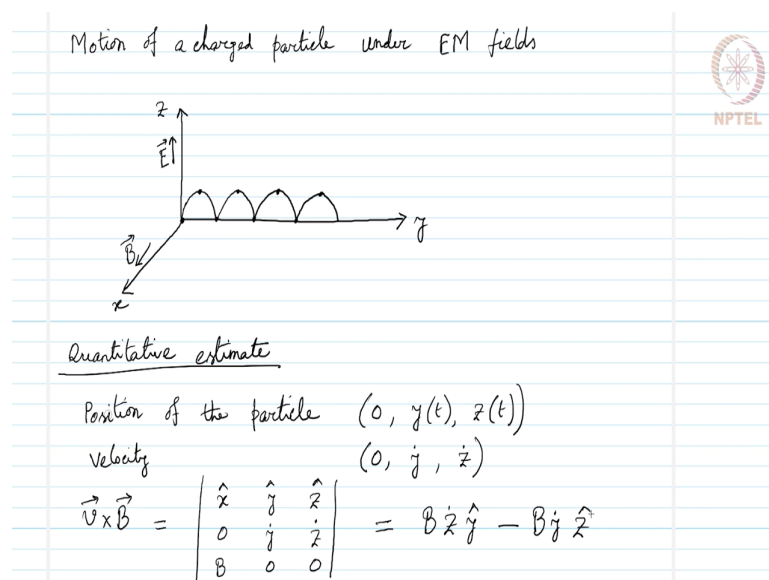 Motion of a charged particle under EM fields
NPTEL
z
E⃗
y
B⃗
x
Quantitative estimate
Position of the particle (0, y(t), z(t))
velocity (0, ẏ, ż)
v⃗ × B⃗ = | x̂ ŷ ẑ |
| 0 ẏ ż | = B ż ŷ − B ẏ ẑ
| B 0 0 |